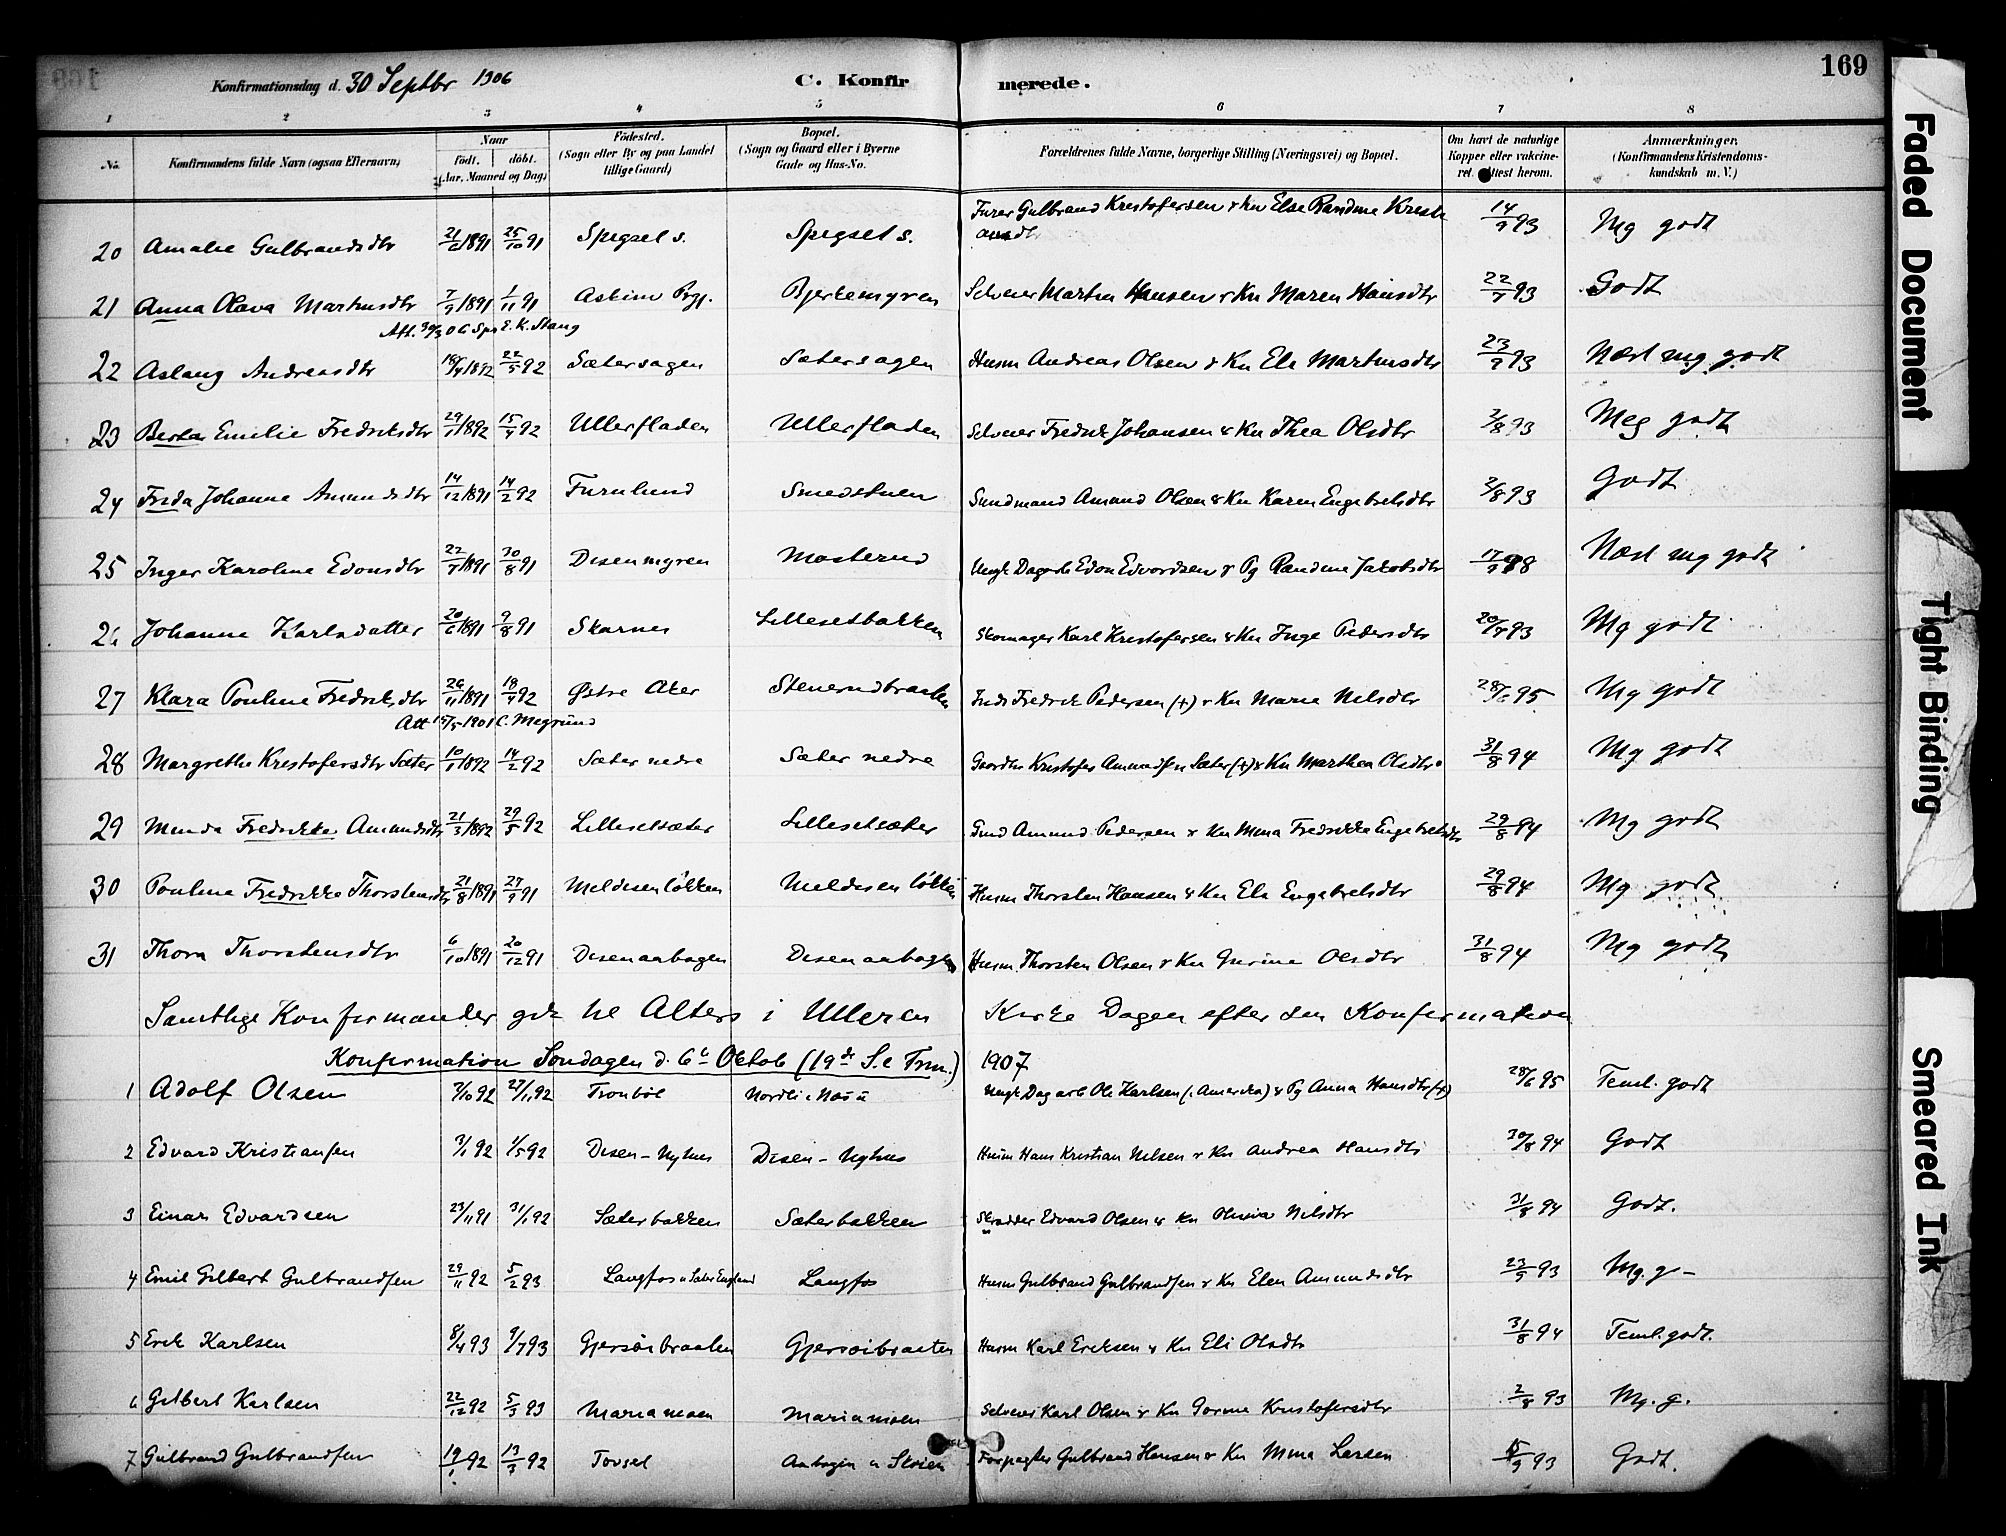 169
Konfirmationsdag d. 30 Septbr 1906 C. Konfirmerede.
1 2 3 4 5 6 7 8
No. Konfirmandens fulde Navn (ogsaa Efternavn) Naar født. døbt. (Aar, Maaned og Dag) Fødested. (Sogn eller By og paa Landet tillige Gaard) Bopæl. (Sogn og Gaard eller i Byerne Gade og Hus-No. Forældrenes fulde Navne, borgerlige Stilling (Næringsvei) og Bopæl. Om havt de naturlige Kopper eller vakcineret. Attest herom. Anmærkninger. (Konfirmandens Kristendomskundskab m. V.)
20 Amalie Gulbrandsdtr 21/6 1891 25/10 91 Spigset s. Spigset s. Gulbrand Kristofersen & Kn Else Randine 14/9 93 Mg godt
21 Anna Olava Martinsdtr 7/9 1891 1/11 91 Askim Bjerkemyren Selveier Martin Hansen & Kn Maren Hansdtr 22/7 93 Godt
Att. 30/3 06 E. K. Stang
22 Aslaug Andreasdtr 18/4 1892 22/5 92 Sætersagen Sætersagen Husm Andreas Olsen & Kn Eli Martinsdtr 23/9 93 Næst mg. godt
23 Berta Emilie Fredriksdtr 29/1 1892 15/4 92 Ullerfladen Ullerfladen Selveier Fredrik Johansen & Kn Thea Olsdtr 2/8 93 Meg godt
24 Frida Johanne Amundsdtr 14/12 1891 14/2 92 Furulund Smedstuen Amund Olsen & Kn Karen Engebretsdtr 2/8 93 Godt
25 Inger Karoline Edonsdtr 22/7 1891 30/8 91 Disenmyren Masterud Ungk Dagarb Edon Edvardsen & Pg Randine Jakobsdtr 17/9 98 Næst mg godt
26 Johanne Karlsdatter 20/6 1891 9/8 91 Skarnes Lillesetbakken Skomager Karl Kristofersen & Kn Inge Pedersdtr 20/9 93 Mg godt
27 Klara Pouline Fredriksdtr 26/11 1891 18/4 92 Østre Aker Stenerudbraaten Inds Fredrik Pedersen (+) & Kn Marie Nilsdtr 28/6 95 Mg godt
Att 15/5 1901 C. Magrund
28 Margrethe Kristofersdtr Sæter 10/1 1892 14/2 92 Sæter nedre Sæter nedre Gaardbr Kristofer Amundsen Sæter (+) & Kn Marthea Olsdtr 31/8 94 Mg godt
29 Minda Fredrikke Amundsdtr 21/3 1892 29/5 92 Lillesetsæter Lillesetsæter Amund Pedersen & Kn Mina Fredrikke Engebretsdtr 29/8 94 Mg godt
30 Pouline Fredrikke Thorstensdtr 21/8 1891 27/9 91 Meldisenløkken Meldisenløkken Husm Thorsten Hansen & Kn Eli Engebretsdtr 29/8 94 Mg godt
31 Thora Thorstensdtr 6/10 1891 20/12 91 Disenaabogen Disenaabogen Husm. Thorsten Olsen & Kn Gurine Olsdtr 31/8 94 Mg godt
Samtlige Konfirmander gik til Alters i Ulleren Kirke Dagen efter den Konfirmation
Konfirmation Søndagen d. 6te Oktob (19de S. e Trin.) 1907
1 Adolf Olsen 7/10 92 27/11 92 Tronbøl Nordli Ungk Dagarb Ole Karlsen (i Amerika) & Pg Anna Hansdtr (+) 28/6 95 Teml. godt
2 Edvard Kristiansen 3/1 92 1/5 92 Disen-Nyhus Disen-Nyhus Husm Hans Kristian Nilsen & Kn Andrea Hansdtr 30/8 94 Godt
3 Einar Edvardsen 23/11 91 31/1 92 Sæterbakken Sæterbakken Skrædder Edvard Olsen & Kn Oliva Nilsdtr 31/8 94 Godt.
4 Emil Gilbert Gulbrandsen 29/11 92 5/2 93 Langfos Langfos Husm Gulbrand Gulbrandsen & Kn Elen Amundsdtr 23/9 93 Mg. g-
5 Erik Karlsen 8/4 93 9/7 93 Gjersøibraaten Gjersøibraaten Husm Karl Eriksen & Kn Eli Olsdtr 31/8 94 Teml. godt.
6 Gilbert Karlsen 22/12 92 5/3 93 Mariamoen Mariamoen Selveier Karl Olsen & Kn Gorine Kristofersdtr 2/8 93 Mg. g.
7 Gulbrand Gulbrandsen 19/1 92 13/3 92 Tovset Aabogen Forpagter Gulbrand Hansen & Kn Mina Larsen 15/9 93 Godt.
Faded Document
Tight Binding
Smeared Ink